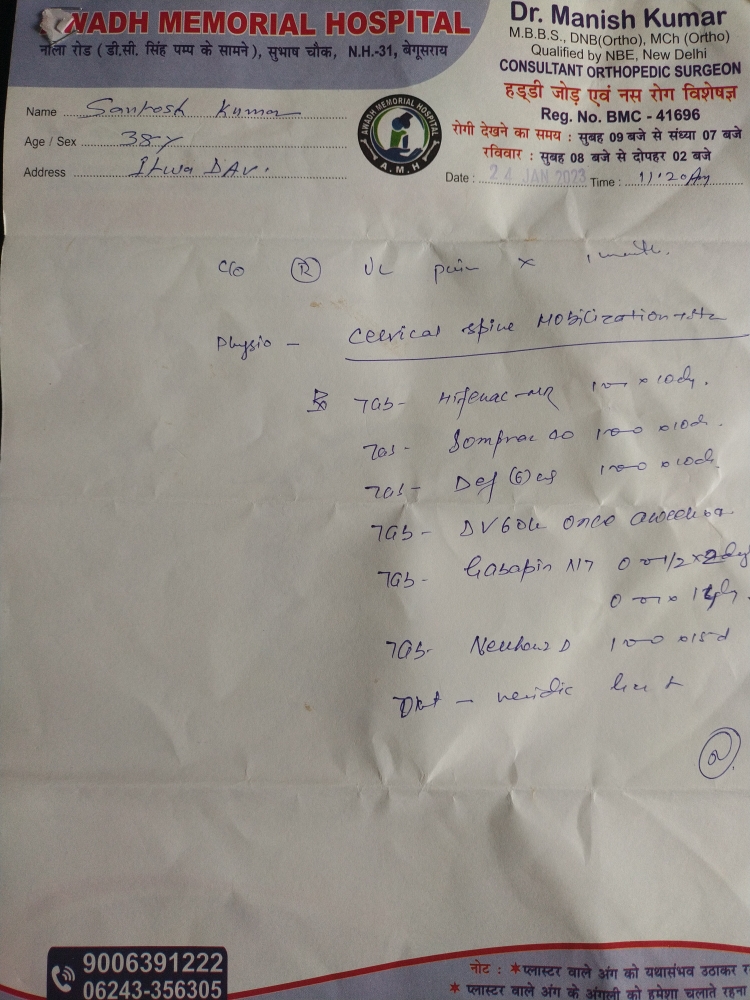 WADH MEMORIAL HOSPITAL
नाला रोड (डी.सी. सिंह पम्प के सामने), सुभाष चौक, N.H.-31, बेगूसराय
Dr. Manish Kumar
M.B.B.S., DNB(Ortho), MCh (Ortho)
Qualified by NBE, New Delhi
CONSULTANT ORTHOPEDIC SURGEON
हड्डी जोड़ एवं नस रोग विशेषज्ञ
Reg. No. BMC - 41696
रोगी देखने का समय : सुबह 09 बजे से संध्या 07 बजे
रविवार : सुबह 08 बजे से दोपहर 02 बजे
Name Santosh Kumar
Age / Sex 38y
Address DAV.
AWADH MEMORIAL HOSPITAL
A.M.H
Date : 24 JAN 2023 Time : 11:20 Am
C/o R UL pain x 1 month.
Physio - Cervical spine Mobilization
Rx Tab- Hifenac-MR x 10d.
Tab- 1-0-0 x10d.
Tab- Def 6 1-0-0 x10d.
Tab- DV60k once a week
Tab- Gabapin NT 0-0-1/2 x
0-0-1 x
Tab- D 1-0-0 x15d
9006391222
06243-356305
नोट : *प्लास्टर वाले अंग को यथासंभव उठाकर
* प्लास्टर वाले अंग के अंगुली को हमेशा चलाते रहना